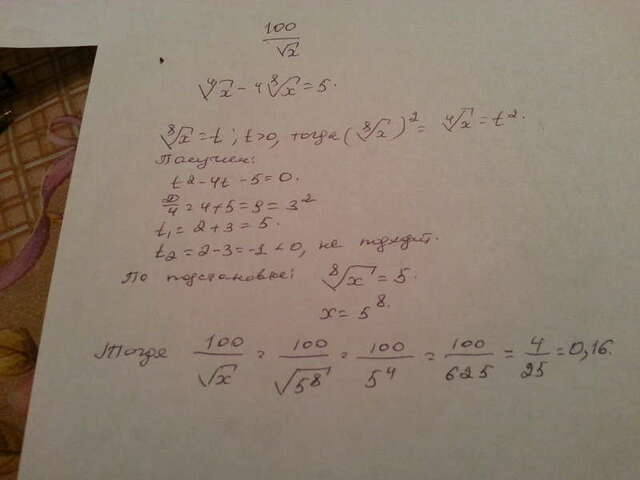 100/√x
⁴√x - 4 ⁸√x = 5.
⁸√x = t; t>0, тогда (⁸√x)² = ⁴√x = t².
Получим:
t² - 4t - 5 = 0.
D/4 = 4+5 = 9 = 3²
t₁ = 2+3 = 5.
t₂ = 2-3 = -1 < 0, не подходит.
По подстановке: ⁸√x = 5.
x = 5⁸.
Тогда 100/√x = 100/√5⁸ = 100/5⁴ = 100/625 = 4/25 = 0,16.